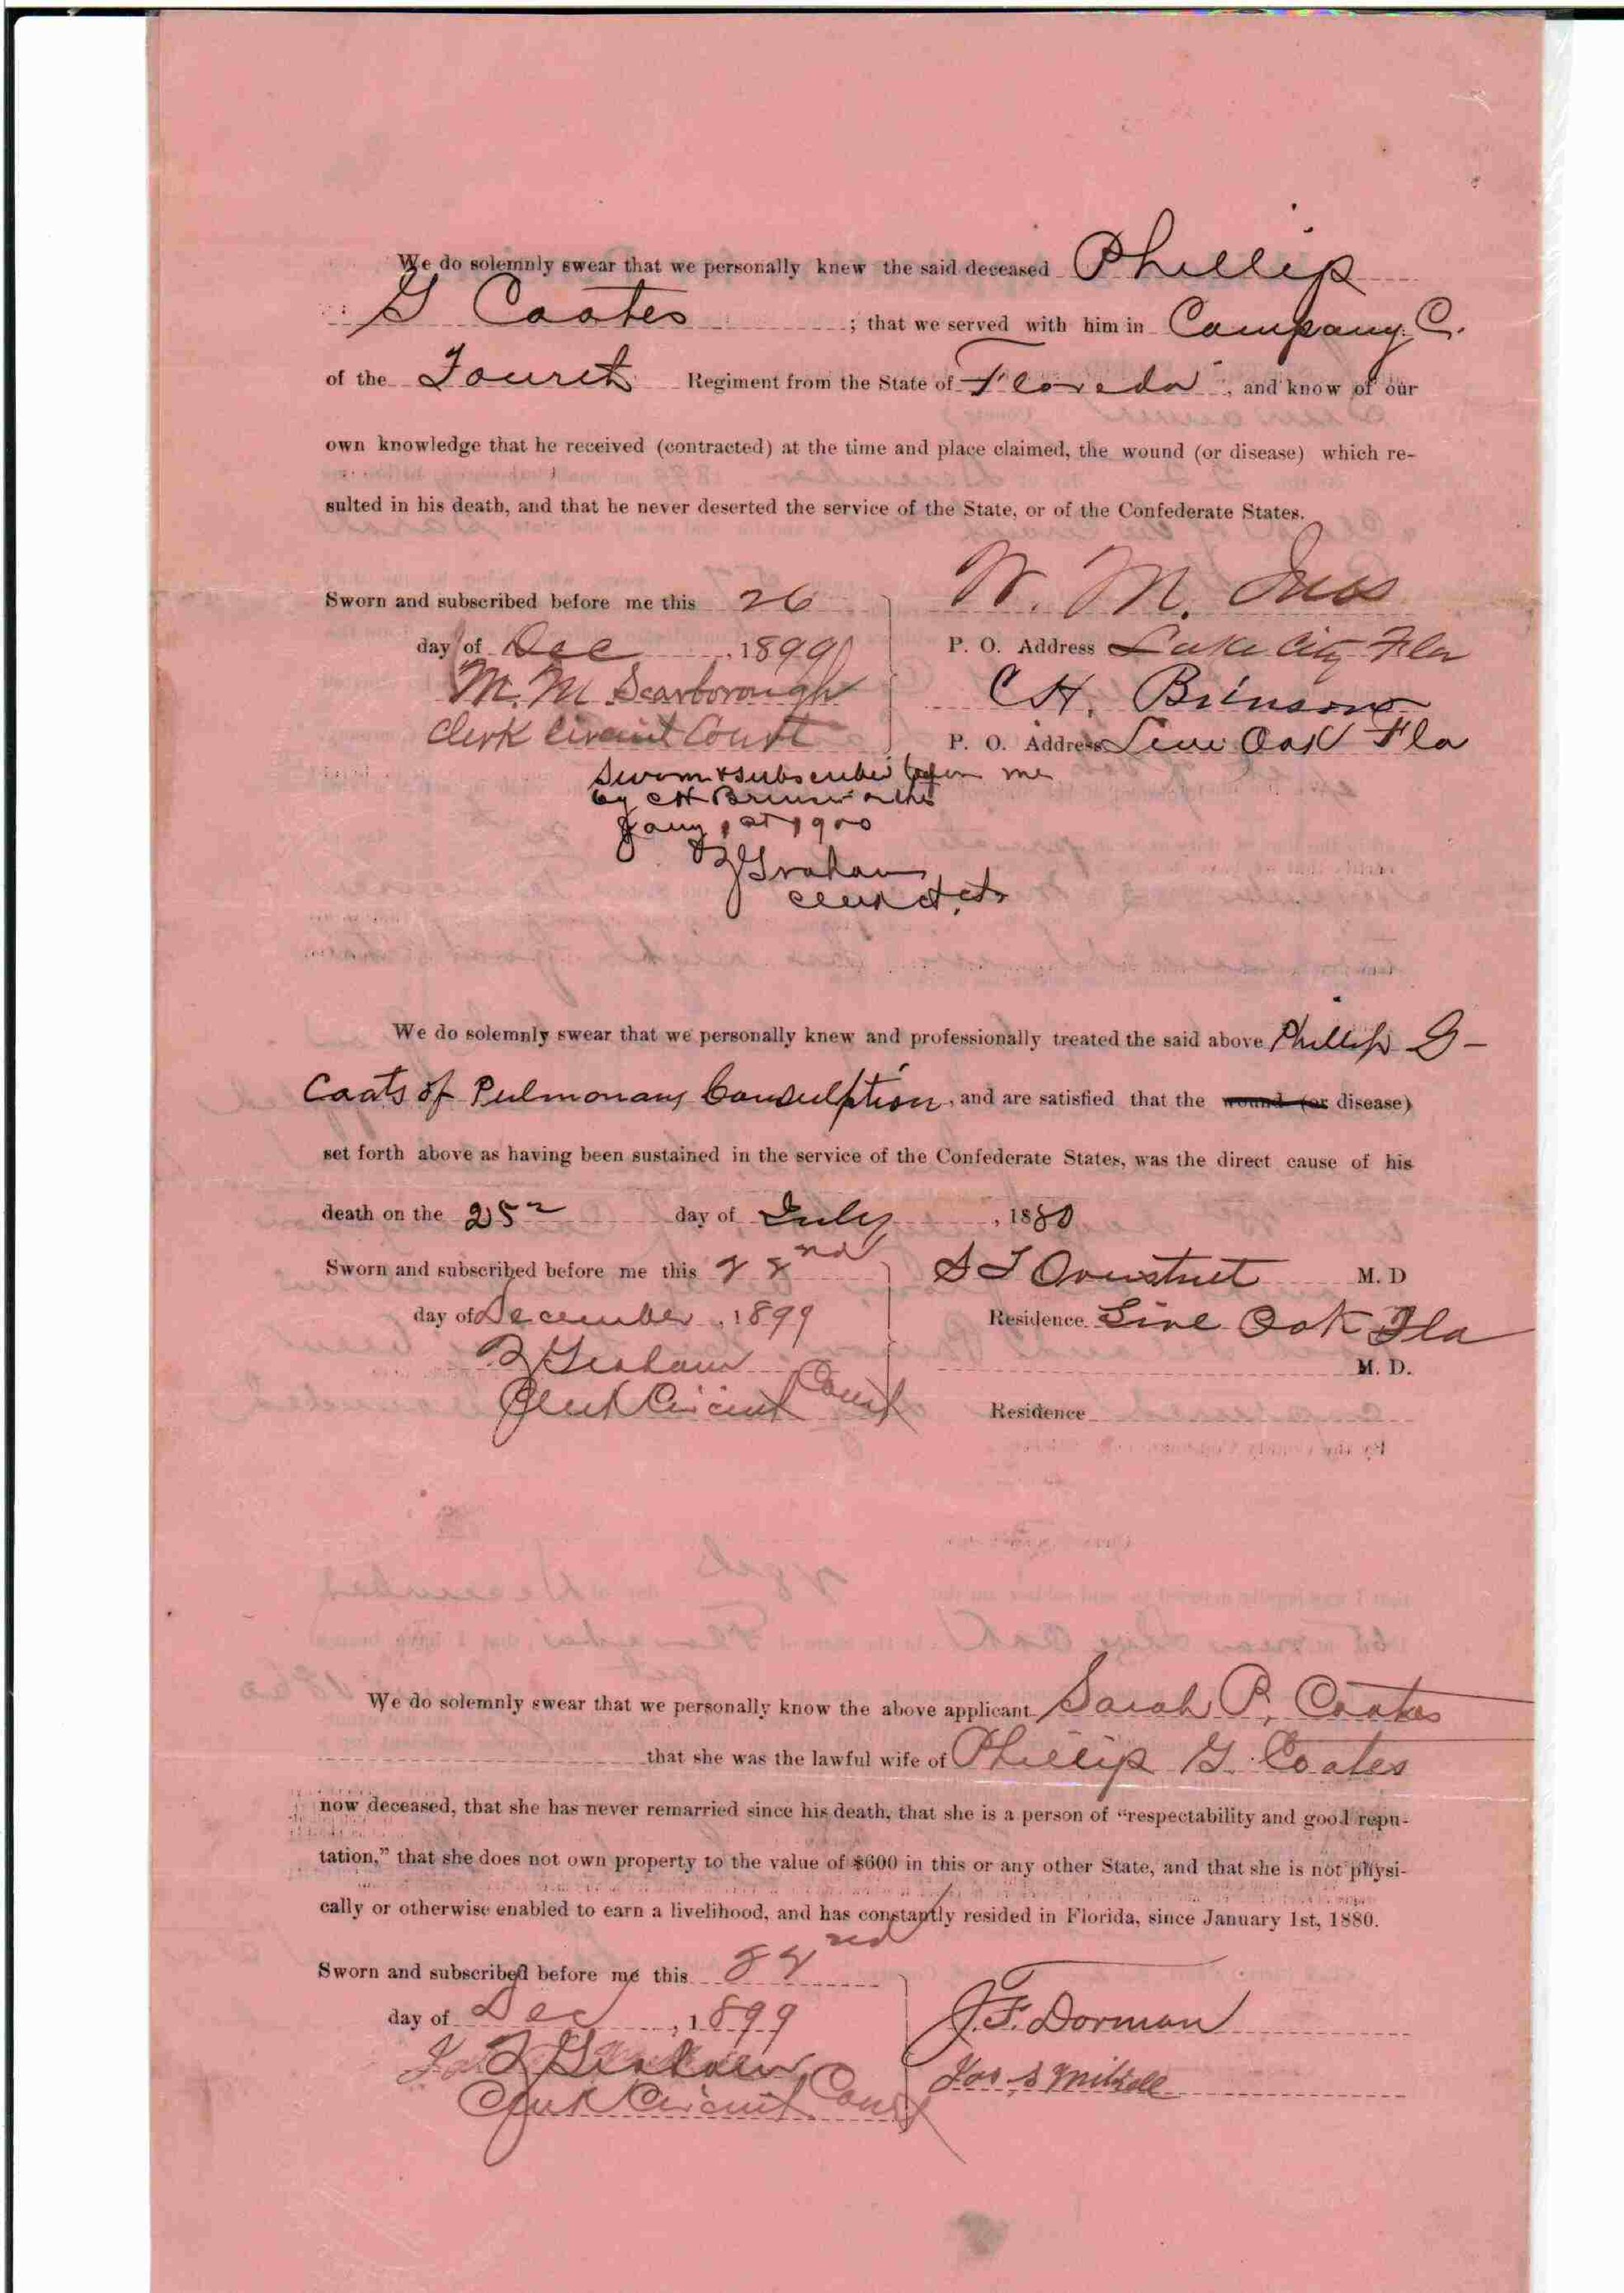 We do solemnly swear that we personally knew the said deceased Phillip
G Coates ; that we served with him in Company C.
of the Fourth Regiment from the State of Floreda , and know of our
own knowledge that he received (contracted) at the time and place claimed, the wound (or disease) which re-
sulted in his death, and that he never deserted the service of the State, or of the Confederate States.
Sworn and subscribed before me this 26
day of Dec , 1899
M. M Scarborough
Clerk Circuit Court
W. M. Ives
P. O. Address Lake City Fla
C H. Brinson
P. O. Address Live Oak Fla
Sworn & subscribed before me
by C H Brinson on this
Jany 1st 1900
Graham
Clerk
We do solemnly swear that we personally knew and professionally treated the said above Phillip G-
Coats of Pulmonary Consulption , and are satisfied that the wound (or disease)
set forth above as having been sustained in the service of the Confederate States, was the direct cause of his
death on the 25 day of July , 1880
Sworn and subscribed before me this 22nd
day of December , 1899
Graham
Clerk Circuit Court
S T Overstreet M. D
Residence Live Oak Fla
M. D.
Residence
We do solemnly swear that we personally know the above applicant Sarah P. Coates
that she was the lawful wife of Phillip G. Coates
now deceased, that she has never remarried since his death, that she is a person of “respectability and good repu-
tation,” that she does not own property to the value of $600 in this or any other State, and that she is not physi-
cally or otherwise enabled to earn a livelihood, and has constantly resided in Florida, since January 1st, 1880.
Sworn and subscribed before me this 22nd
day of Dec , 1899
Graham
Clerk Circuit Court
J. F. Dorman
Jas S